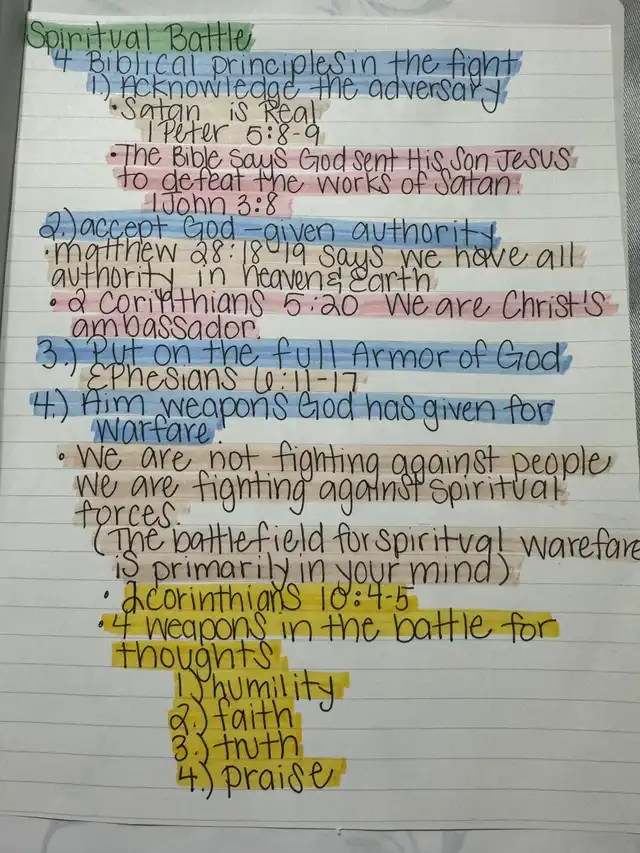 Spiritual Battle
4 Biblical principles in the fight
1) Acknowledge the adversary
• Satan is Real
1 Peter 5:8-9
• The Bible says God sent His Son JESUS
to defeat the works of Satan.
1 John 3:8
2.) accept God-given authority
• matthew 28:18-19 says we have all
authority in heaven & Earth
• 2 Corinthians 5:20 We are Christ's
ambassador.
3.) Put on the full Armor of God
Ephesians 6:11-17
4.) Aim weapons God has given for
warfare.
• We are not fighting against people
we are fighting against spiritual
forces.
(The battlefield for spiritual warefare
is primarily in your mind)
• 2 corinthians 10:4-5
• 4 weapons in the battle for
thoughts
1.) humility
2.) faith
3.) truth
4.) praise